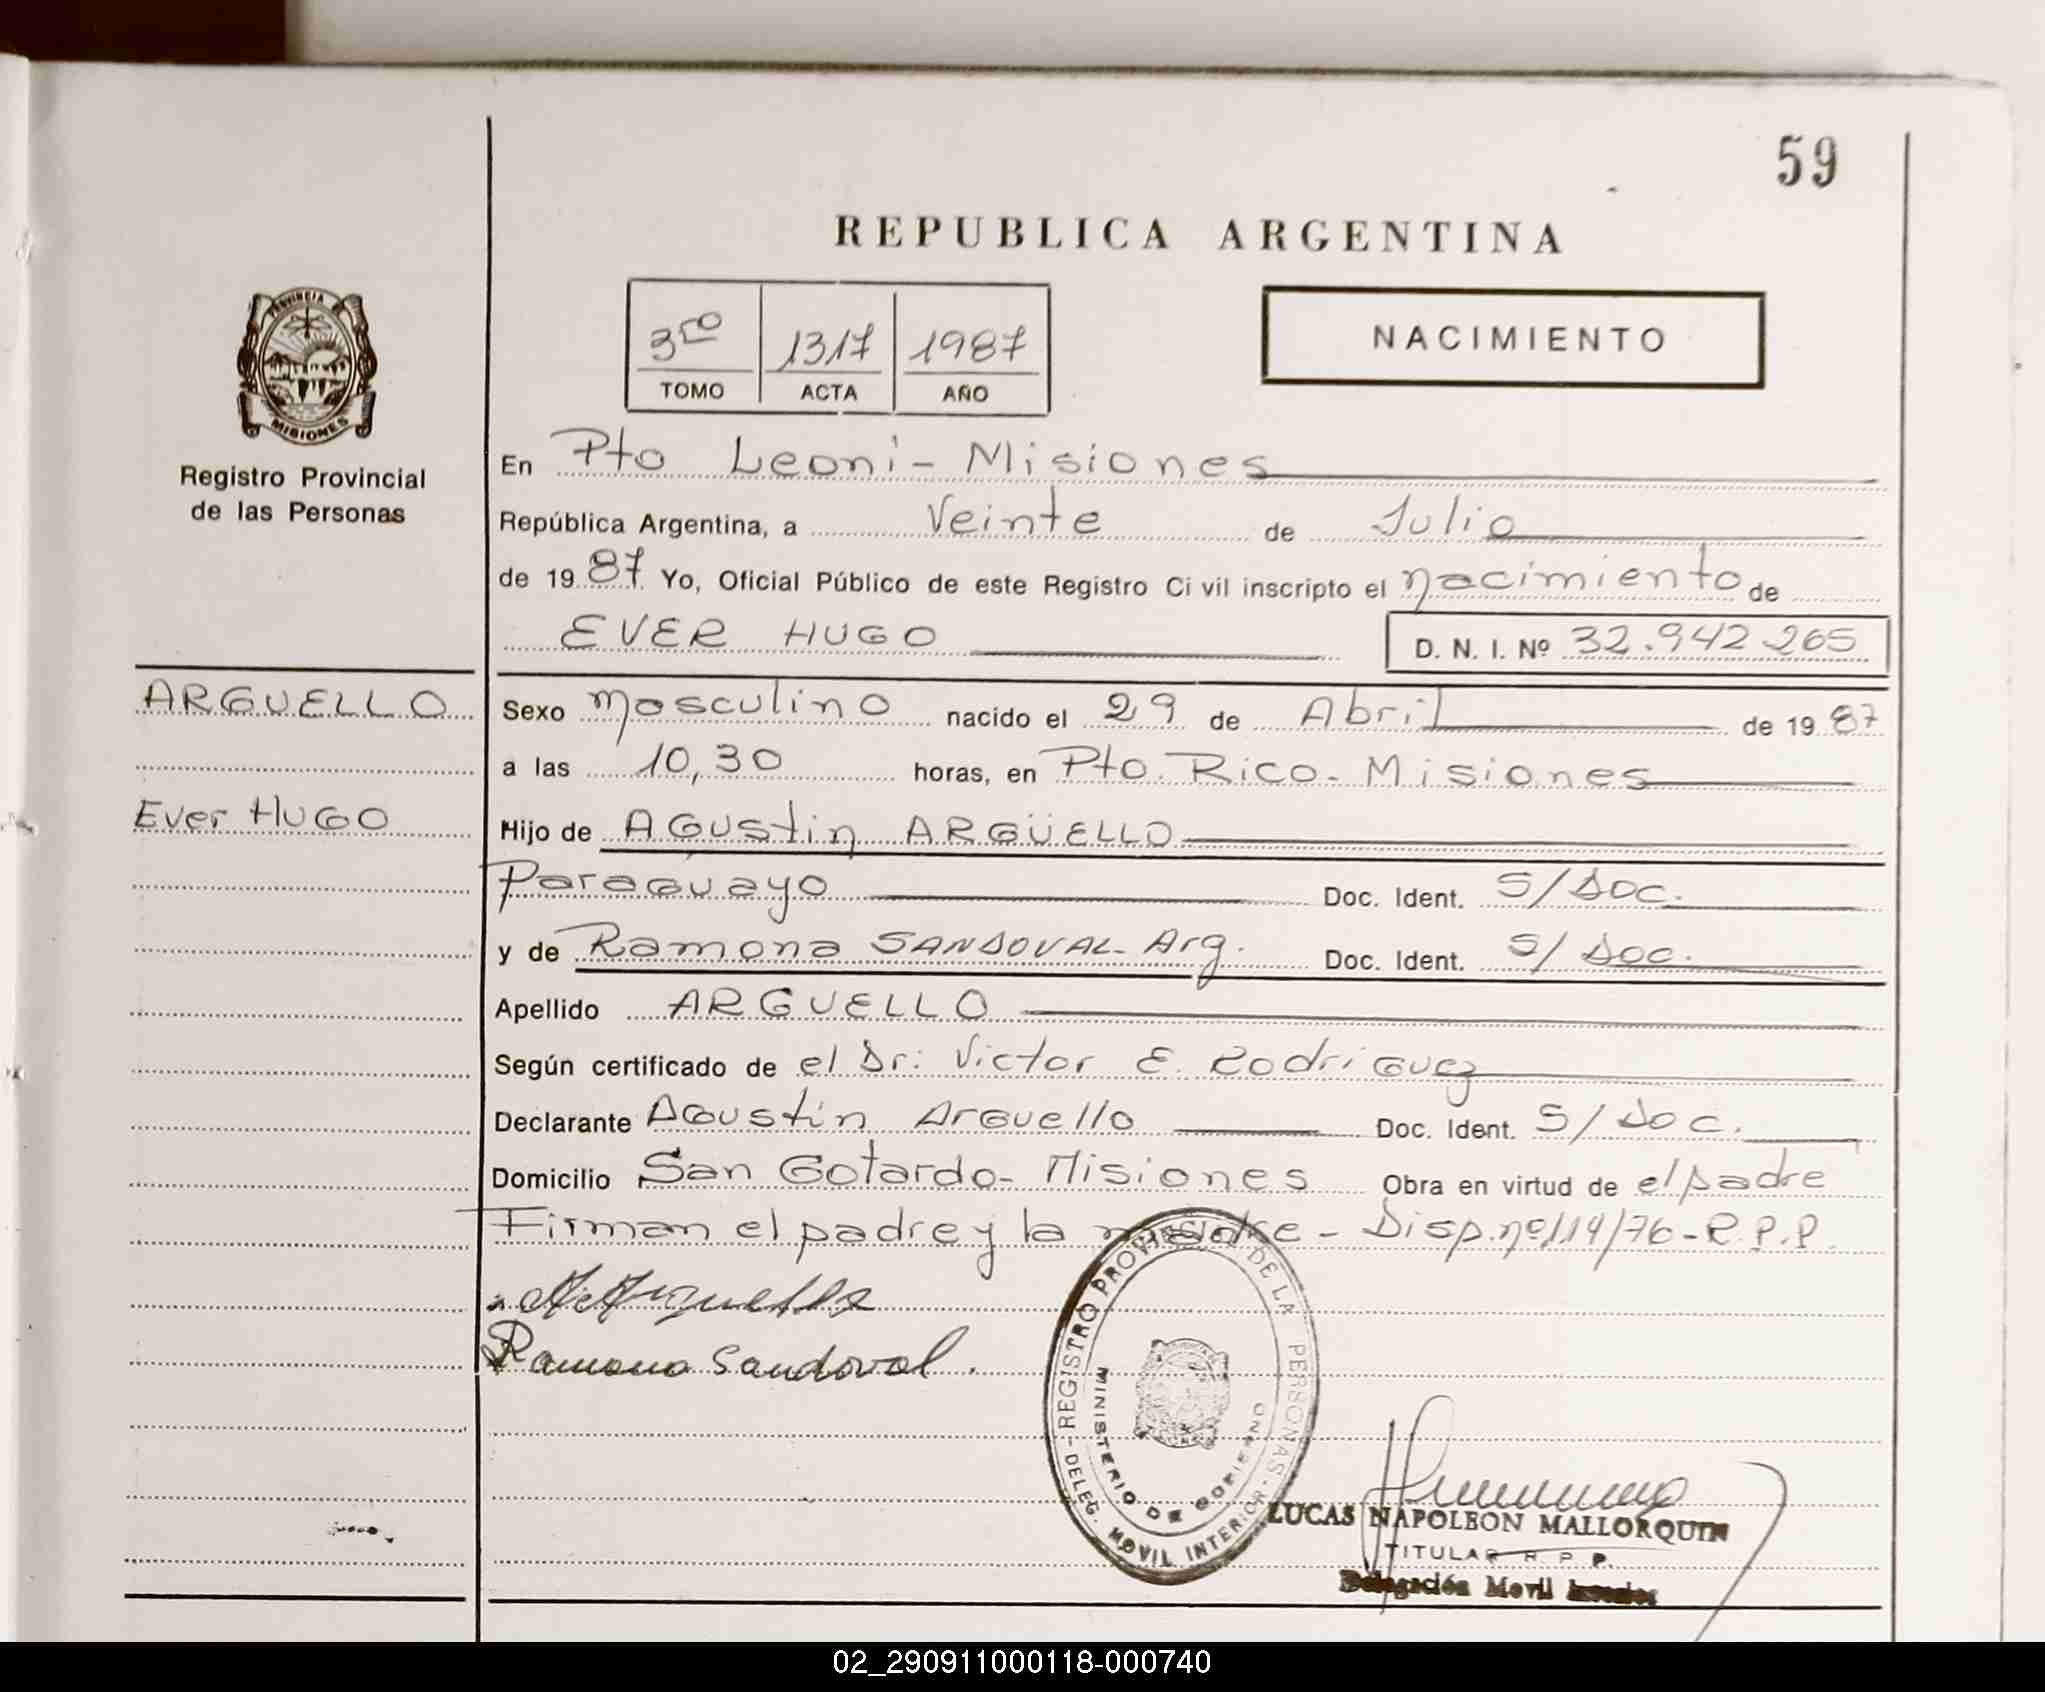 59
REPUBLICA ARGENTINA
3ro 1317 1987
TOMO ACTA AÑO
NACIMIENTO
PROVINCIA
MISIONES
Registro Provincial
de las Personas
En Pto Leoni - Misiones
República Argentina, a Veinte de Julio
de 1987 Yo, Oficial Público de este Registro Civil inscripto el nacimiento de
EVER HUGO D. N. I. Nº 32.942.265
ARGUELLO
Ever HUGO
Sexo masculino nacido el 29 de Abril de 1987
a las 10,30 horas, en Pto. Rico - Misiones
Hijo de AGUstin ARGÜELLO
Paraguayo Doc. Ident. S/Doc.
y de Ramona SANDOVAL - Arg. Doc. Ident. S/Doc.
Apellido ARGUELLO
Según certificado de el Dr: Victor E. Rodriguez
Declarante Agustin Arguello Doc. Ident. S/Doc.
Domicilio San Gotardo - Misiones Obra en virtud de el padre
Firman el padre y la madre - Disp. nº 114/76 - R.P.P.
Ramona Sandoval.
REGISTRO PROVINCIAL DE LA PERSONAS - DELEG. MOVIL INTERIOR
MINISTERIO DE GOBIERNO
LUCAS NAPOLEON MALLORQUIN
TITULAR R. P. P.
Delegación Movil
02_290911000118-000740